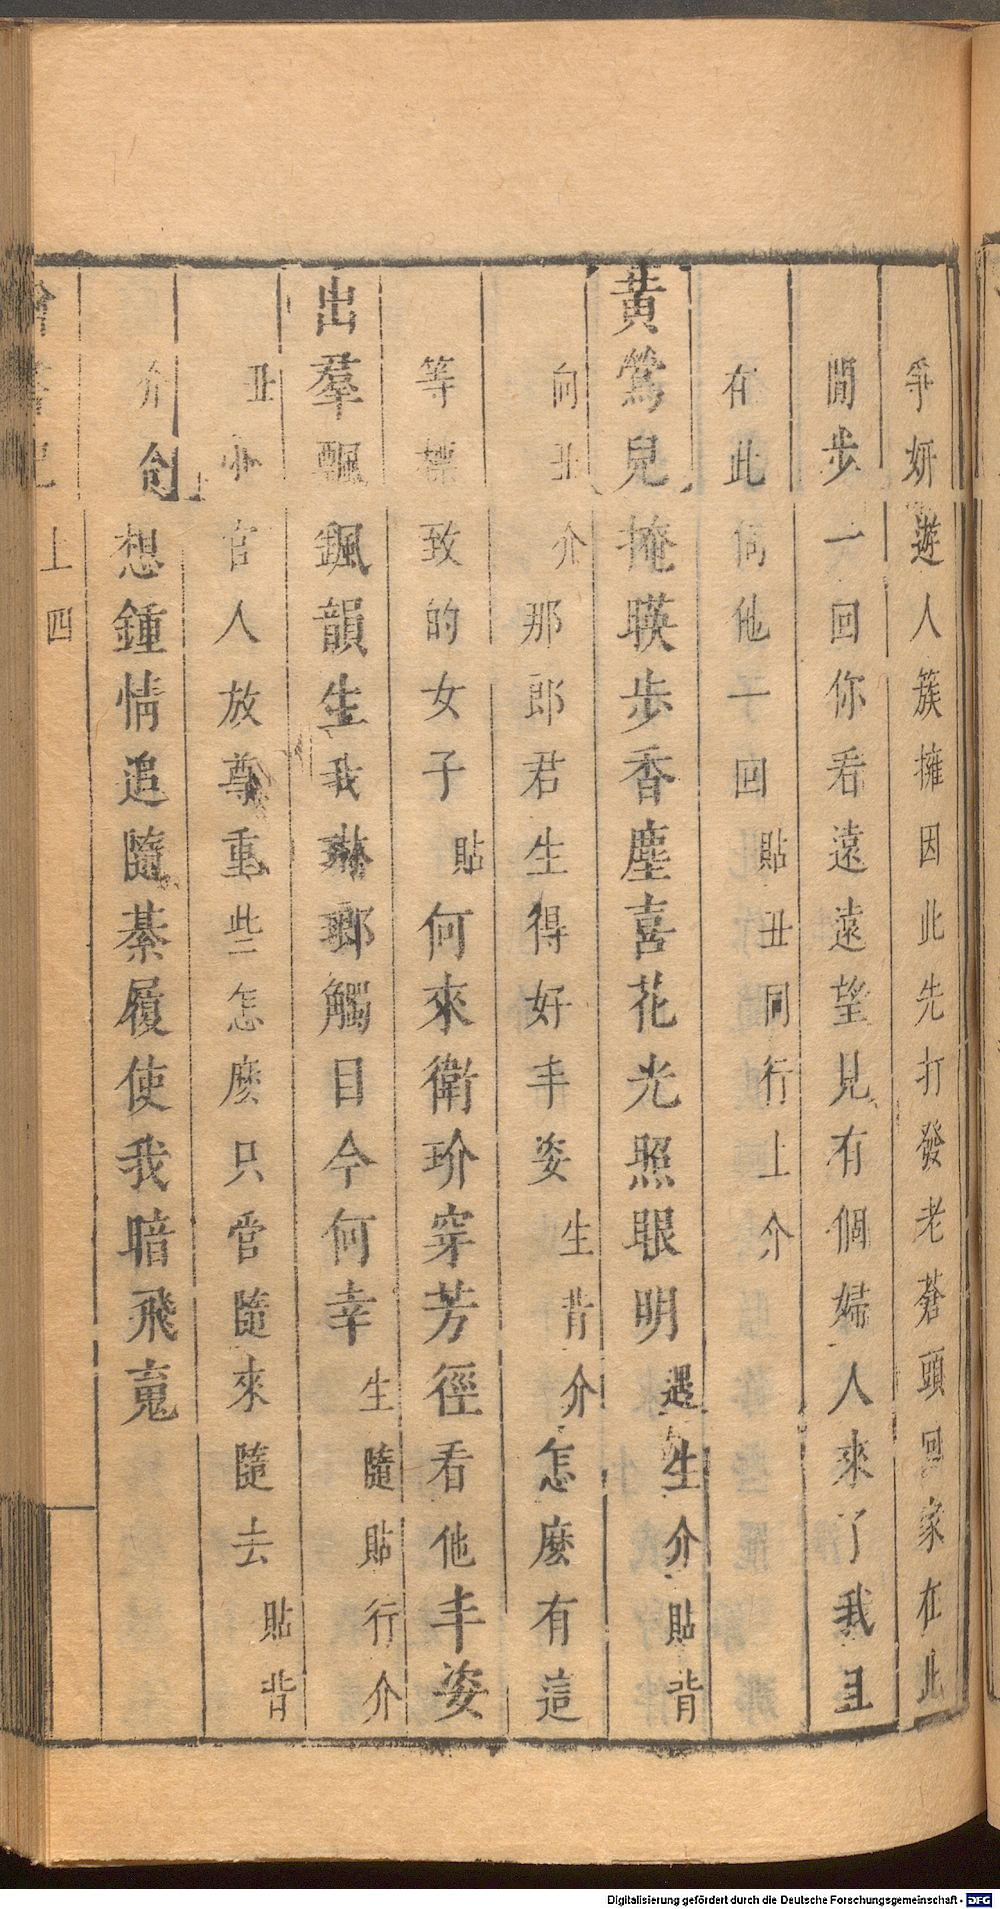 爭妍遊人簇擁因此先打發老蒼頭回家在此
閒步一回你看遠遠望見有個婦人來了我且
在此伺他一回貼丑同行上介
黃鶯兒掩暎步香塵喜花光照眼明遇生介貼背
向丑介那郎君生得好丰姿生背介怎麽有這
等標致的女子貼何來衛玠穿芳徑看他丰姿
出羣飄颻韻生我琳瑯觸目今何幸生隨貼行介
丑小官人放尊重些怎麽只管隨來隨去貼背
介想鍾情追隨綦履使我暗飛䰟
上 四
Digitalisierung gefördert durch die Deutsche Forschungsgemeinschaft - DFG